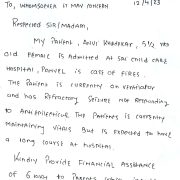 TO, WHOMSOEVER IT MAY CONCERN 12/4/23
Respected Sir/Madam,
My Patient, 5½ yrs
old Female is admitted at Sai Child Care
Hospital, Panvel is case of FIRES.
The Patient is currently on ventilator
and has Refractory Seizure not Responding
to Antiepileptics. The Patient is currently
maintaining vitals But is expected to have
a long course at hospital.
Kindly Provide Financial Assistance
of 6 Lakh to Parents